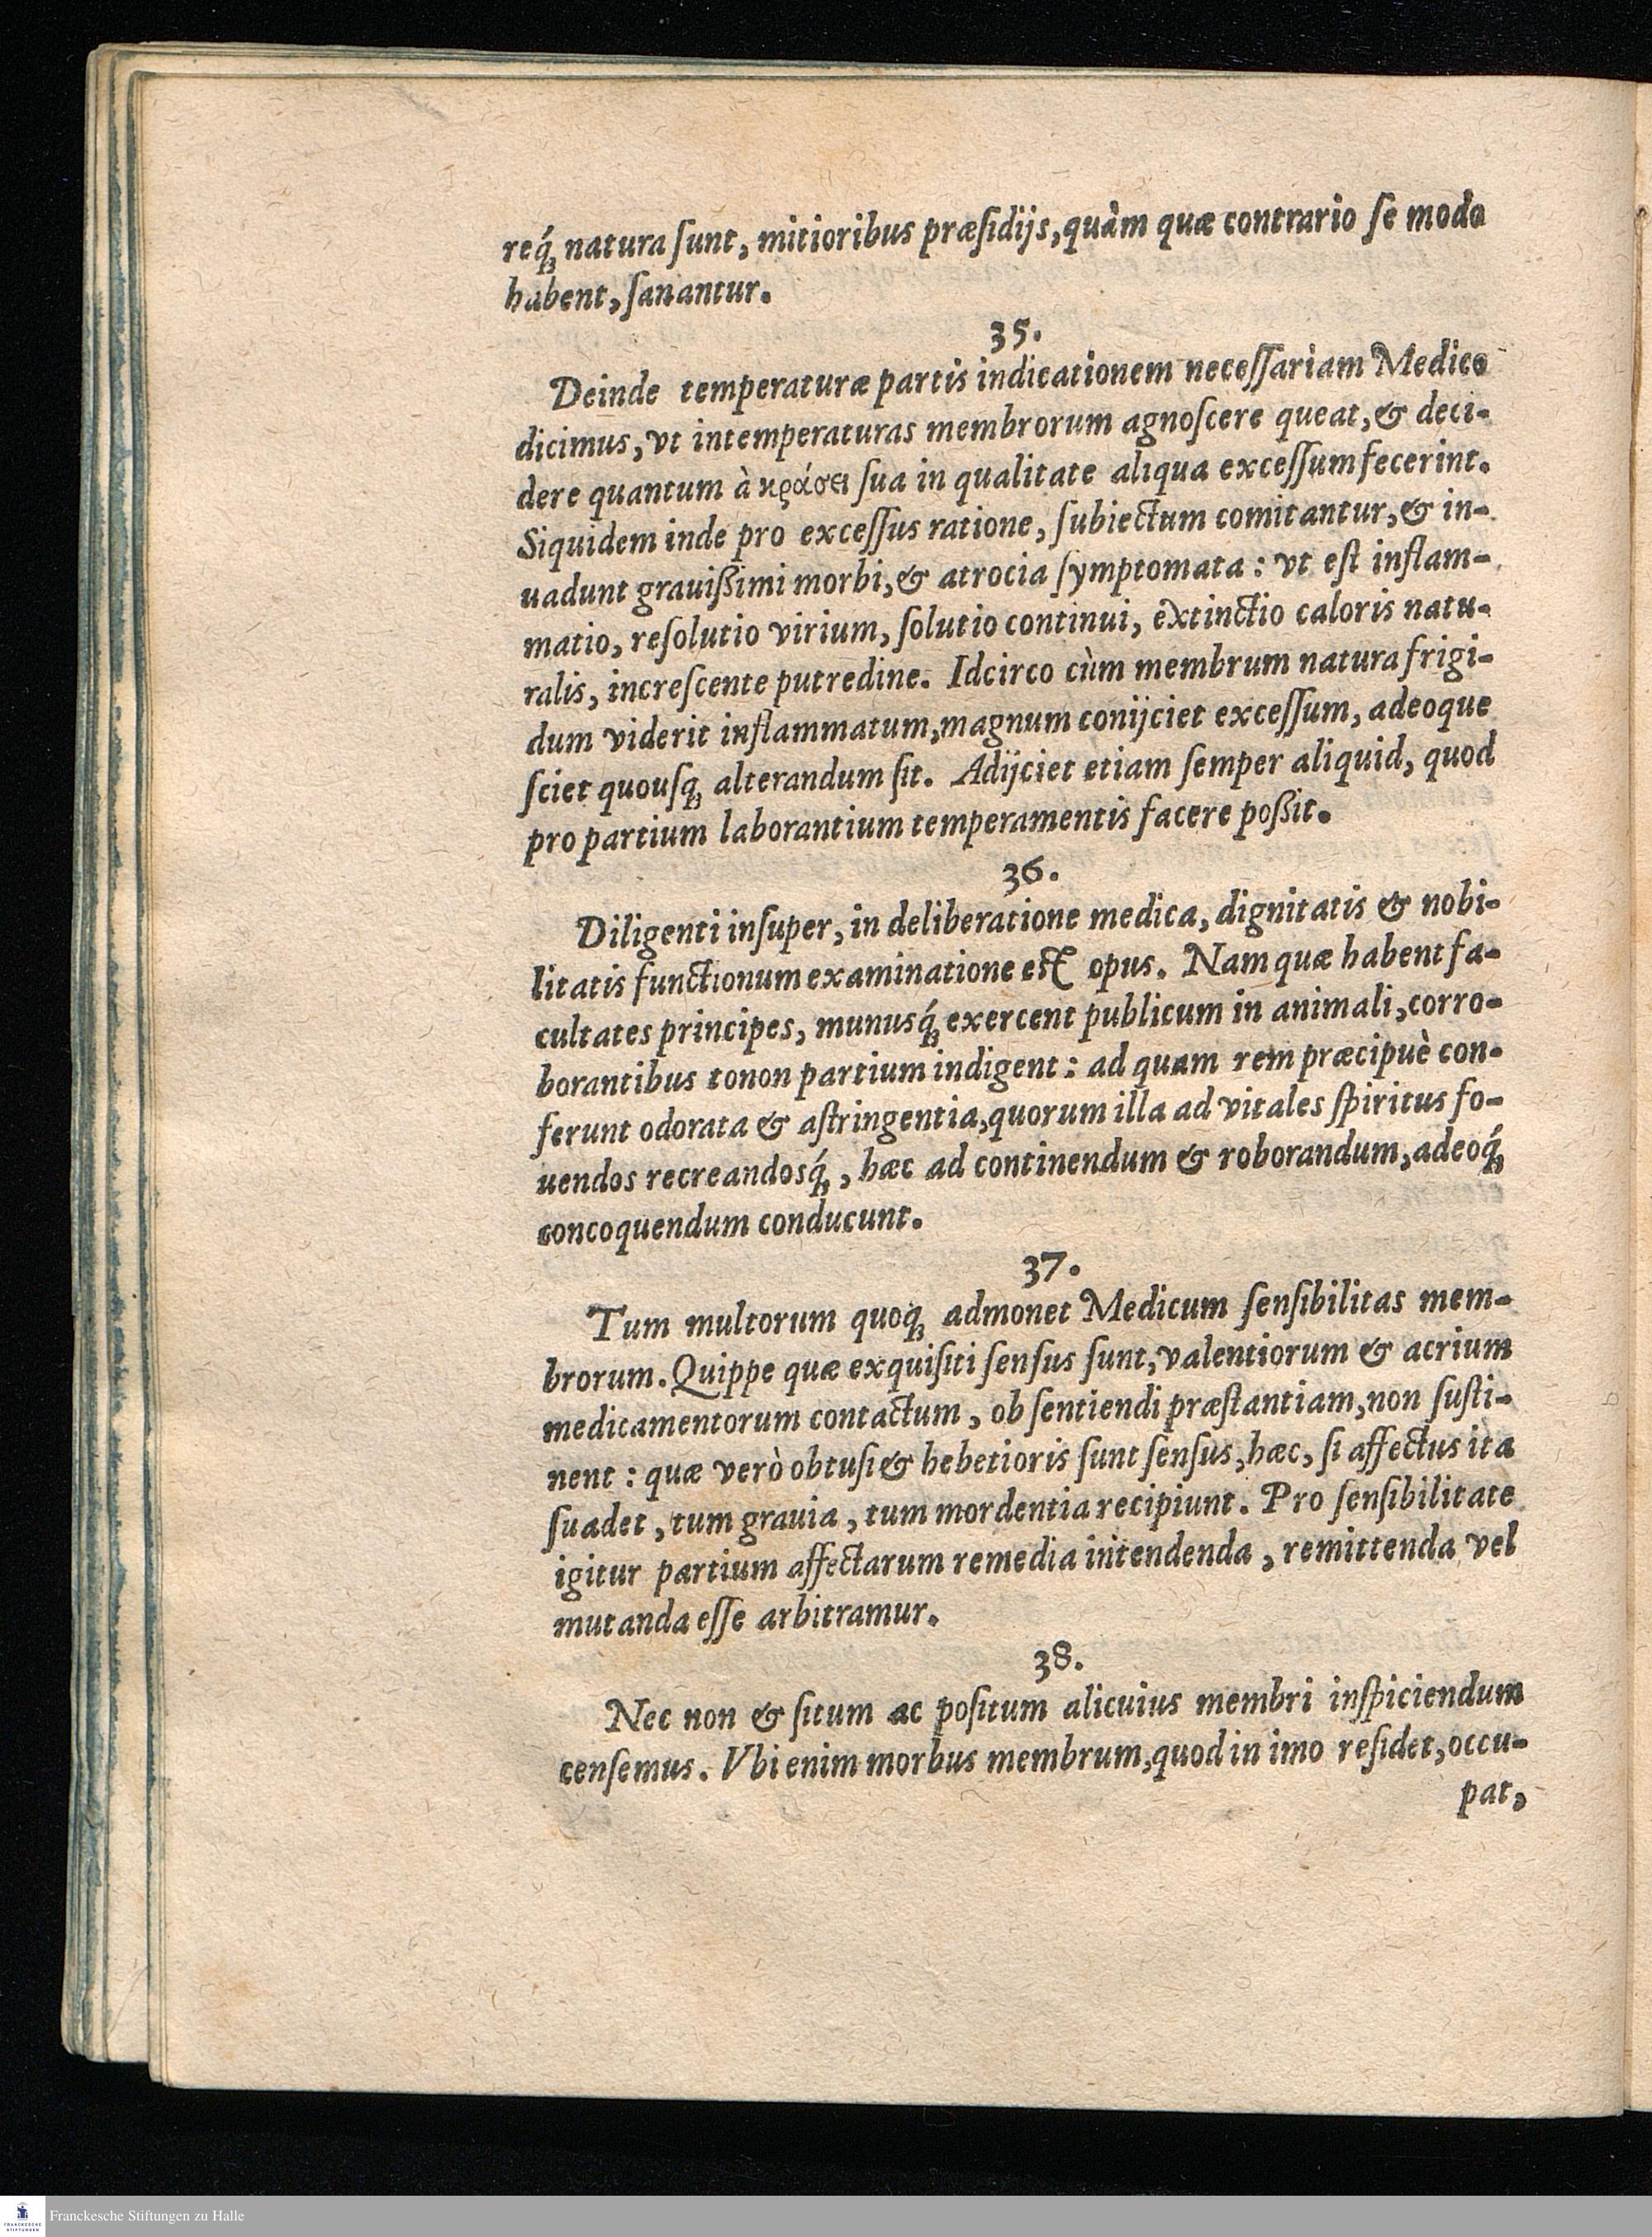 req́ꝫ natura ſunt, mitioribus præſidijs, quàm quæ contrario ſe modo
habent, ſanantur.
35.
Deinde temperaturæ partis indicationem neceſſariam Medico
dicimus, vt intemperaturas membrorum agnoſcere queat, & deci-
dere quantum à κράσει ſua in qualitate aliqua exceſſum fecerint.
Siquidem inde pro exceſſus ratione, ſubiectum comitantur, & in-
uadunt grauißimi morbi, & atrocia ſymptomata: vt eſt inflam-
matio, reſolutio virium, ſolutio continui, extinctio caloris natu-
ralis, increſcente putredine. Idcirco cùm membrum natura frigi-
dum viderit inflammatum, magnum conijciet exceſſum, adeoque
ſciet quouſqꝫ alterandum ſit. Adijciet etiam ſemper aliquid, quod
pro partium laborantium temperamentis facere poßit.
36.
Diligenti inſuper, in deliberatione medica, dignitatis & nobi-
litatis functionum examinatione est opus. Nam quæ habent fa-
cultates principes, munusq́ꝫ exercent publicum in animali, corro-
borantibus tonon partium indigent: ad quam rem præcipuè con-
ferunt odorata & aſtringentia, quorum illa ad vitales ſpiritus fo-
uendos recreandosq́ꝫ, hæc ad continendum & roborandum, adeoq́ꝫ
concoquendum conducunt.
37.
Tum multorum quoqꝫ admonet Medicum ſenſibilitas mem-
brorum. Quippe quæ exquiſiti ſenſus ſunt, valentiorum & acrium
medicamentorum contactum, ob ſentiendi præſtantiam, non ſuſti-
nent: quæ verò obtuſi & hebetioris ſunt ſenſus, hæc, ſi affectus ita
ſuadet, tum grauia, tum mordentia recipiunt. Pro ſenſibilitate
igitur partium affectarum remedia intendenda, remittenda vel
mutanda eſſe arbitramur.
38.
Nec non & ſitum ac poſitum alicuius membri inſpiciendum
cenſemus. Vbi enim morbus membrum, quod in imo reſidet, occu-
pat,
Franckesche Stiftungen zu Halle
FRANCKESCHE
STIFTUNGEN